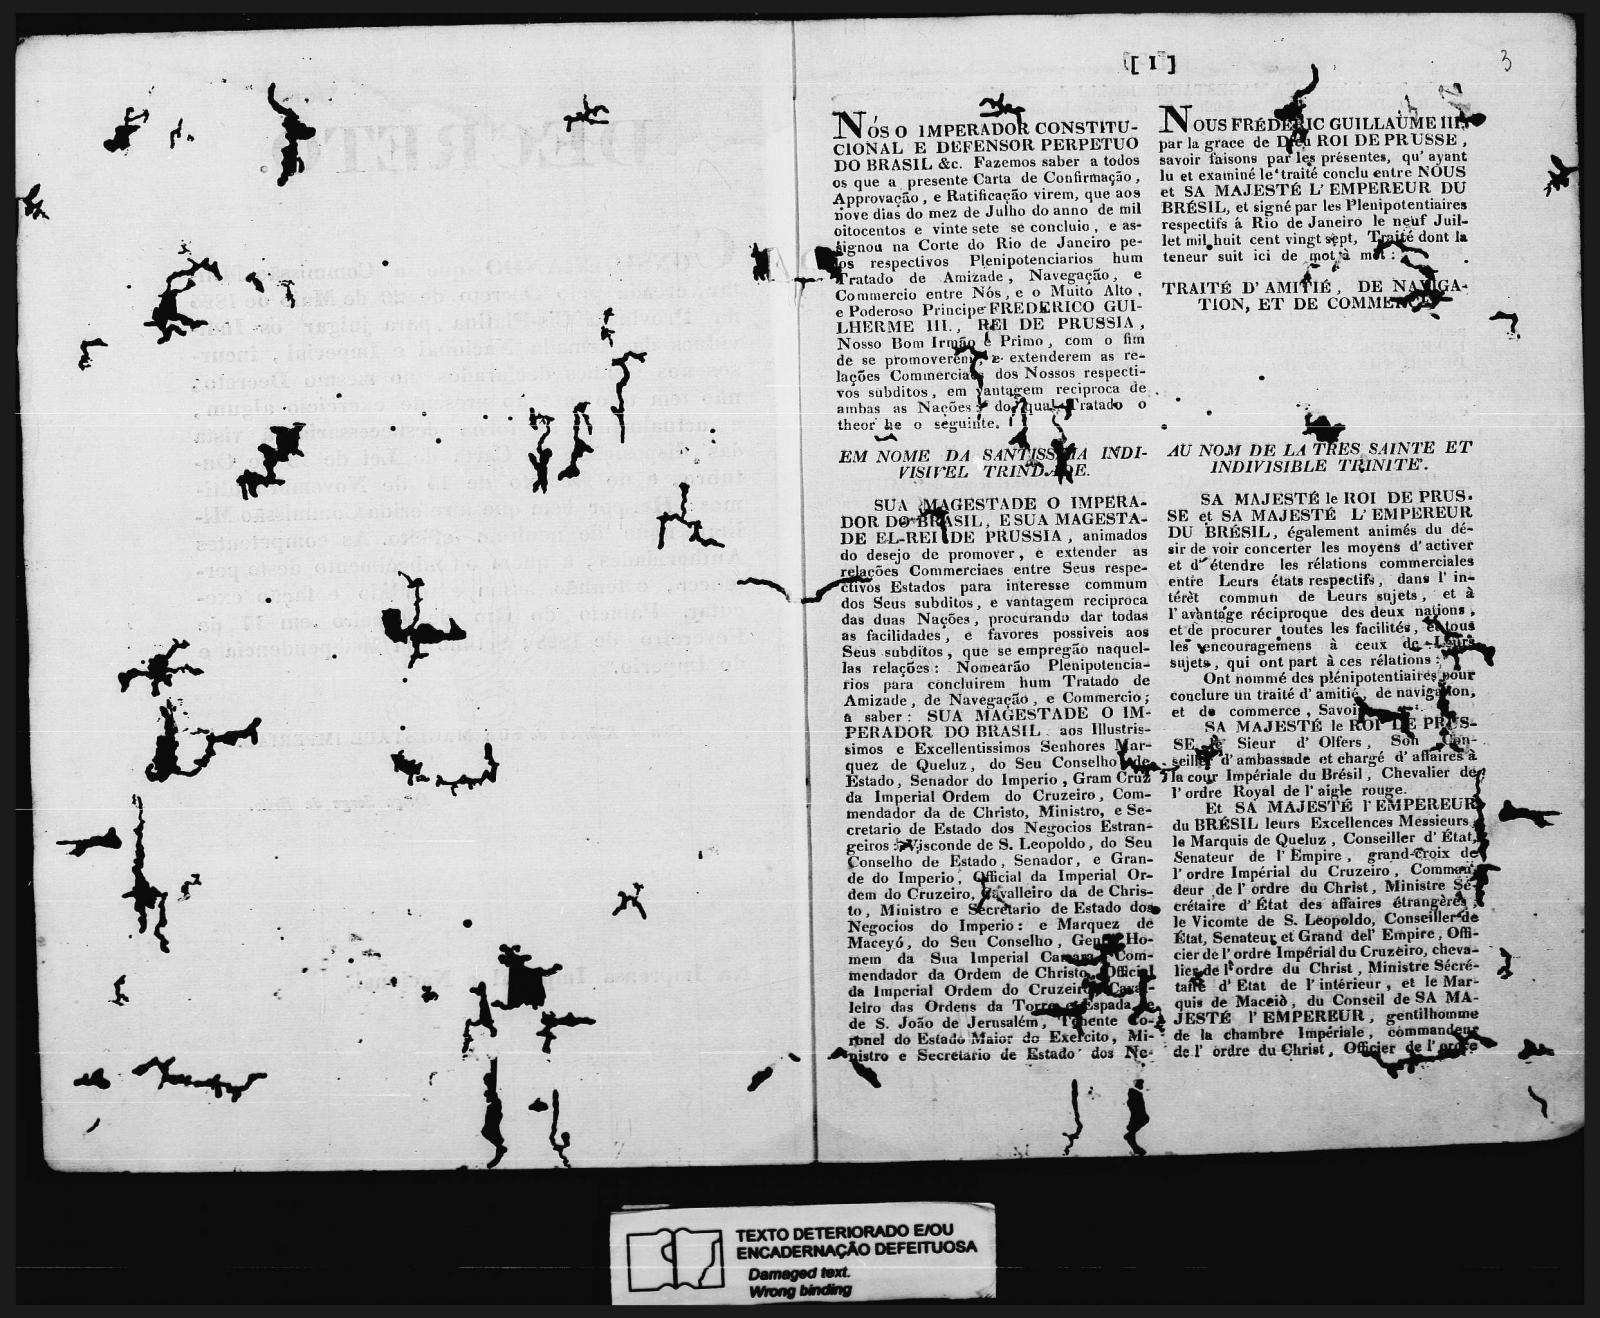 [ 1 ]
3
NÓS O IMPERADOR CONSTITU-
CIONAL E DEFENSOR PERPETUO
DO BRASIL &c. Fazemos saber a todos
os que a presente Carta de Confirmação,
Approvação, e Ratificação virem, que aos
nove dias do mez de Julho do anno de mil
oitocentos e vinte sete se concluio, e as-
signou na Corte do Rio de Janeiro pe-
los respectivos Plenipotenciarios hum
Tratado de Amizade, Navegação, e
Commercio entre Nós, e o Muito Alto,
e Poderoso Principe FREDERICO GUI-
LHERME III., REI DE PRUSSIA,
Nosso Bom Irmão e Primo, com o fim
de se promoverem, e extenderem as re-
lações Commerciaes dos Nossos respecti-
vos subditos, em vantagem reciproca de
ambas as Nações: do qual Tratado o
theor he o seguinte.
EM NOME DA SANTISSIMA INDI-
VISIVEL TRINDADE.
SUA MAGESTADE O IMPERA-
DOR DO BRASIL, E SUA MAGESTA-
DE EL-REI DE PRUSSIA, animados
do desejo de promover, e extender as
relações Commerciaes entre Seus respe-
ctivos Estados para interesse commum
dos Seus subditos, e vantagem reciproca
das duas Nações, procurando dar todas
as facilidades, e favores possiveis aos
Seus subditos, que se empregão naquel-
las relações: Nomearão Plenipotencia-
rios para concluirem hum Tratado de
Amizade, de Navegação, e Commercio;
a saber: SUA MAGESTADE O IM-
PERADOR DO BRASIL aos Illustris-
simos e Excellentissimos Senhores Mar-
quez de Queluz, do Seu Conselho de
Estado, Senador do Imperio, Gram Cruz
da Imperial Ordem do Cruzeiro, Com-
mendador da de Christo, Ministro, e Se-
cretario de Estado dos Negocios Estran-
geiros: Visconde de S. Leopoldo, do Seu
Conselho de Estado, Senador, e Gran-
de do Imperio, Official da Imperial Or-
dem do Cruzeiro, Cavalleiro da de Chris-
to, Ministro e Secretario de Estado dos
Negocios do Imperio: e Marquez de
Maceyó, do Seu Conselho, Gentil Ho-
mem da Sua Imperial Camara, Com-
mendador da Ordem de Christo, Official
da Imperial Ordem do Cruzeiro, Caval-
leiro das Ordens da Torre e Espada, e
de S. João de Jerusalém, Tenente Co-
ronel do Estado Maior do Exercito, Mi-
nistro e Secretario de Estado dos Ne-
NOUS FRÉDÉRIC GUILLAUME III,
par la grace de Dieu ROI DE PRUSSE,
savoir faisons par les présentes, qu' ayant
lu et examiné le traité conclu entre NOUS
et SA MAJESTÉ L' EMPEREUR DU
BRÉSIL, et signé par les Plenipotentiaires
respectifs á Rio de Janeiro le neuf Juil-
let mil huit cent vingt sept, Traité dont la
teneur suit ici de mot à mot:
TRAITÉ D' AMITIÉ, DE NAVIGA-
TION, ET DE COMMERCE.
AU NOM DE LA TRES SAINTE ET
INDIVISIBLE TRINITE'.
SA MAJESTÉ le ROI DE PRUS-
SE et SA MAJESTÉ L' EMPEREUR
DU BRÉSIL, également animés du dé-
sir de voir concerter les moyens d' activer
et d' étendre les rélations commerciales
entre Leurs états respectifs, dans l' in-
térêt commun de Leurs sujets, et à
l' avantage réciproque des deux nations,
et de procurer toutes les facilités, et tous
les encouragemens à ceux de Leurs
sujets, qui ont part à ces rélations:
Ont nommé des plénipotentiaires pour
conclure un traité d' amitié, de navigation,
et de commerce, Savoir:
SA MAJESTÉ le ROI DE PRUS-
SE, le Sieur d' Olfers, Son Con-
seiller d' ambassade et chargé d' affaires à
la cour Impériale du Brésil, Chevalier de
l' ordre Royal de l' aigle rouge.
Et SA MAJESTÉ l' EMPEREUR
du BRÉSIL leurs Excellences Messieurs
le Marquis de Queluz, Conseiller d' État,
Senateur de l' Empire, grand-croix de
l' ordre Impérial du Cruzeiro, Comman-
deur de l' ordre du Christ, Ministre Sé-
crétaire d' État des affaires étrangères;
le Vicomte de S. Leopoldo, Conseiller de
État, Senateur et Grand del' Empire, Offi-
cier de l' ordre Impérial du Cruzeiro, cheva-
lier de l' ordre du Christ, Ministre Sécré-
taire d' Etat de l' intérieur, et le Mar-
quis de Maceiò, du Conseil de SA MA-
JESTÉ l' EMPEREUR, gentilhomme
de la chambre Impériale, commandeur
de l' ordre du Christ, Officier de l' ordre
TEXTO DETERIORADO E/OU
ENCADERNAÇÃO DEFEITUOSA
Damaged text.
Wrong binding